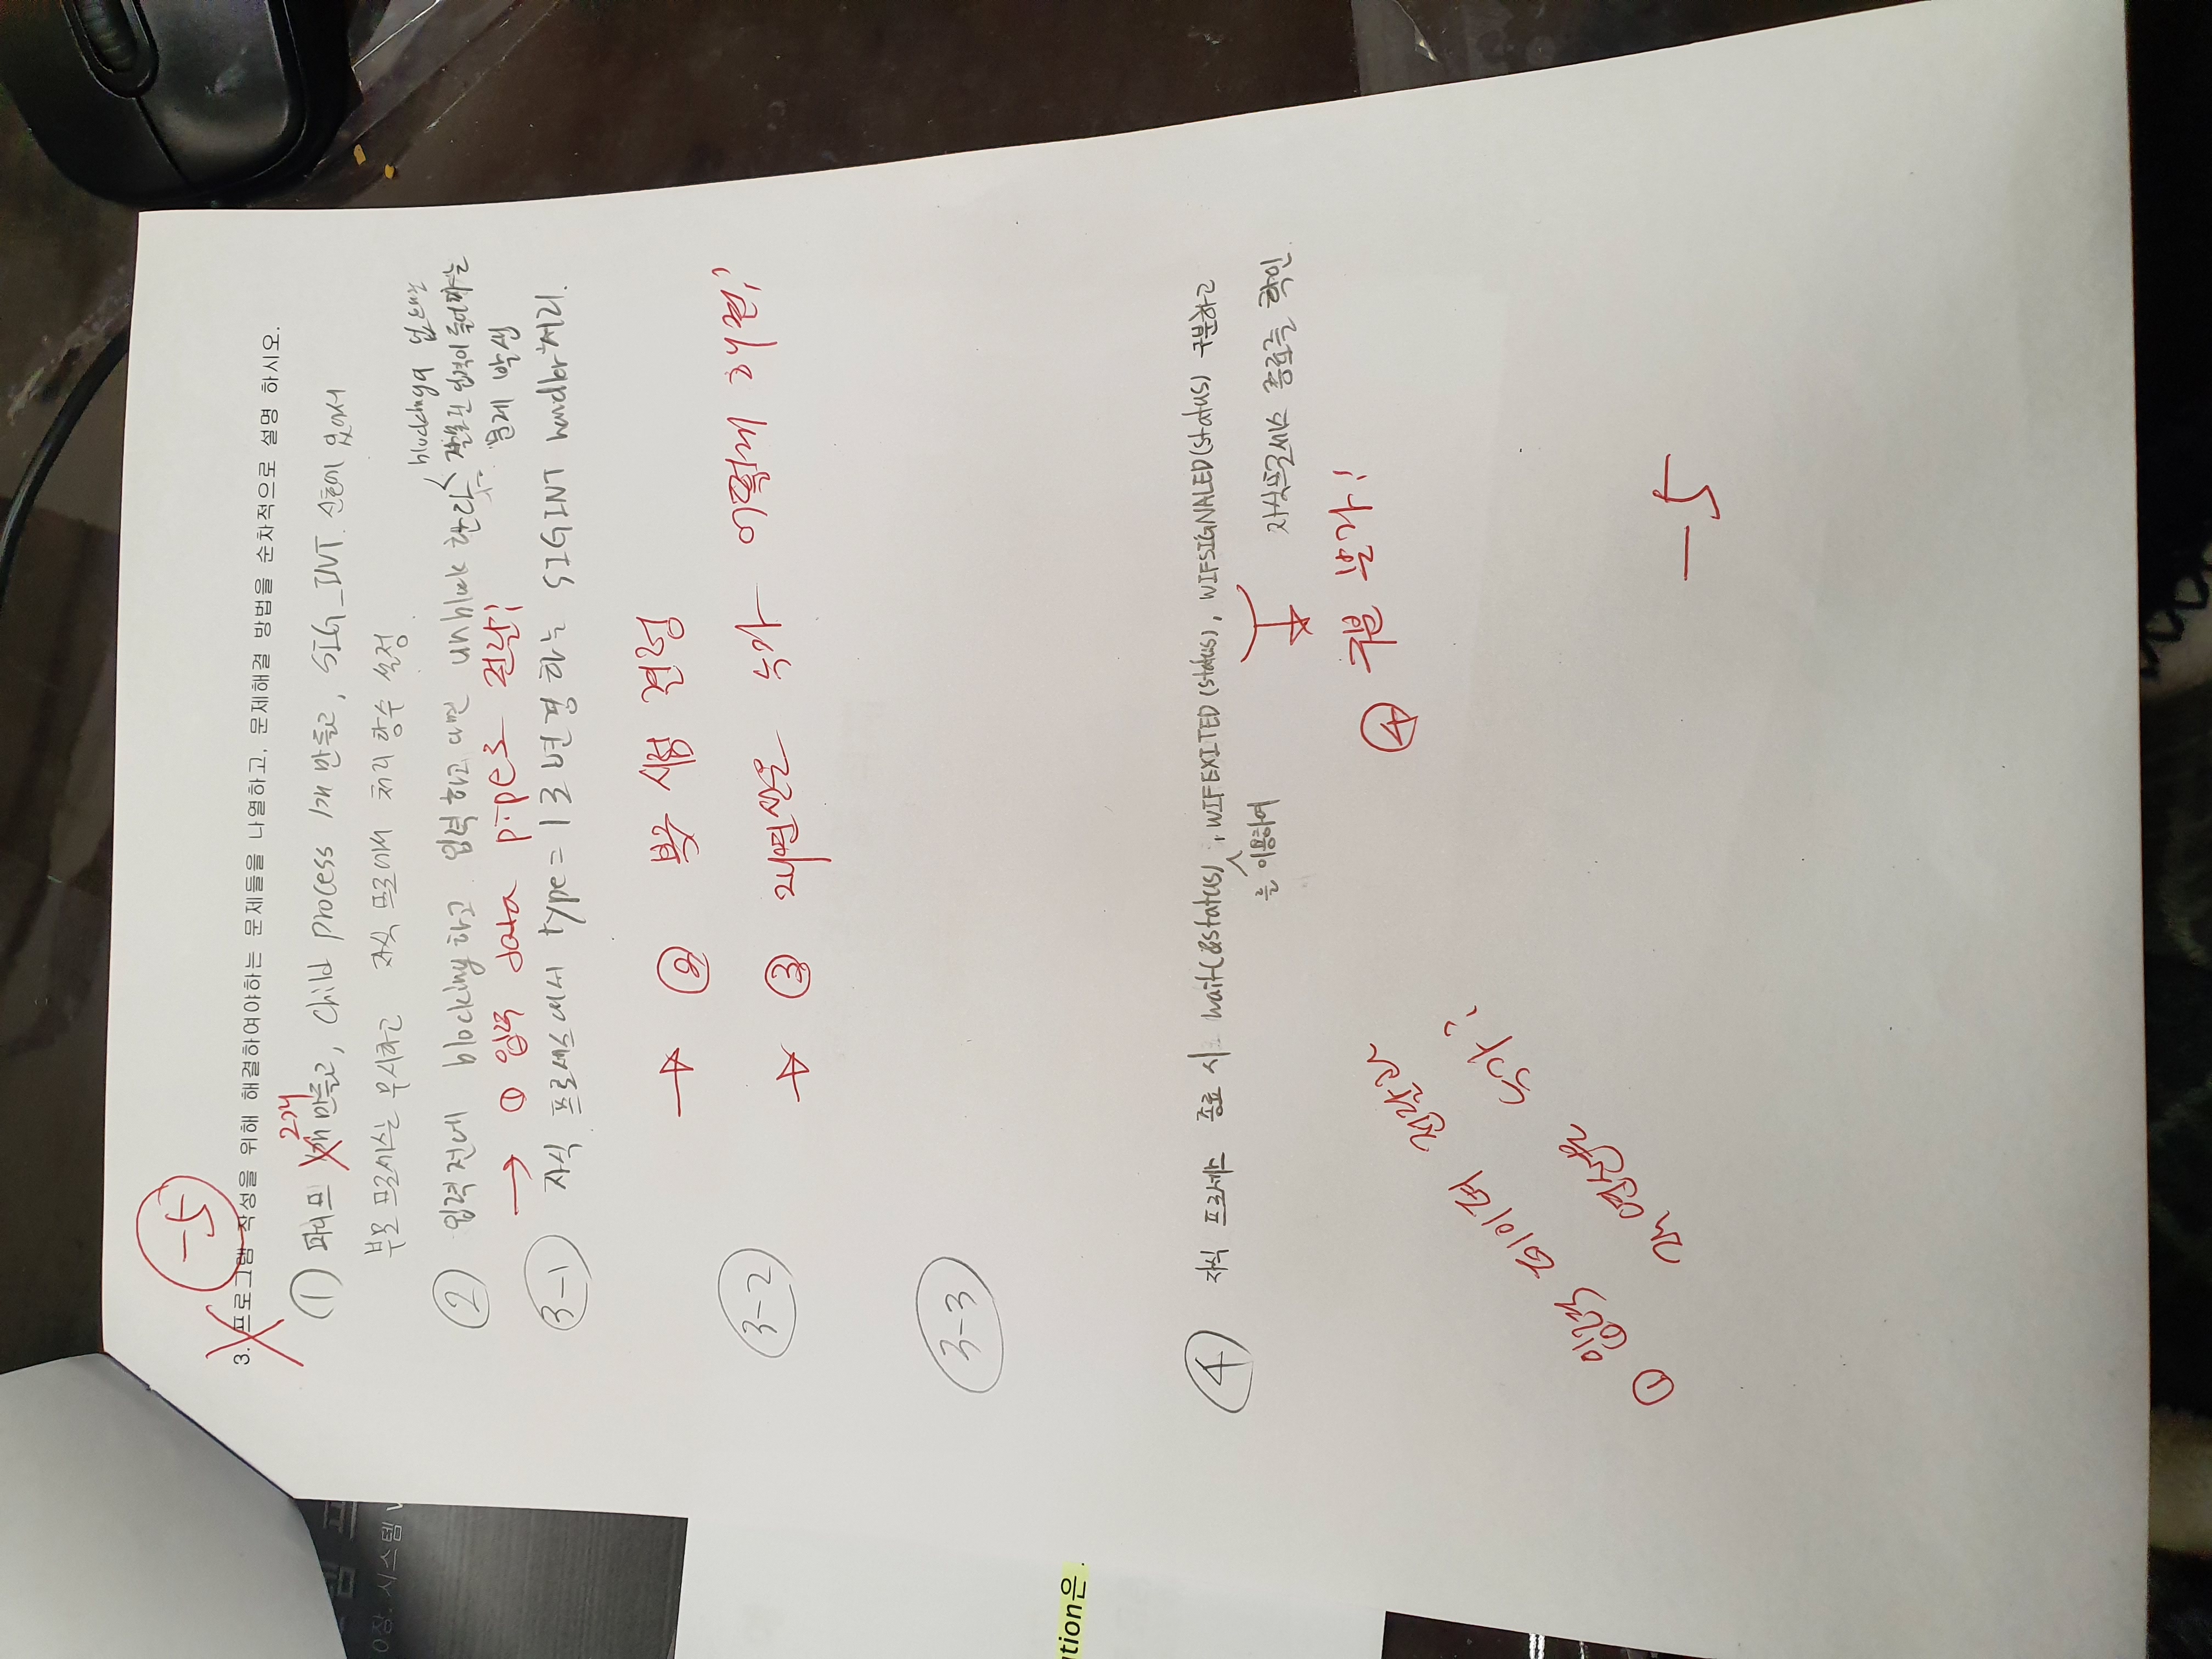 -5
3. 프로그램 작성을 위해 해결하여야하는 문제들을 나열하고, 문제해결 방법을 순차적으로 설명 하시오.
2개
① 파이프 개 만들고, child process 1개 만들고, SIG_INT 신호에 있어서
부모 프로세스는 무시하고 자식 프로에서 처리 함수 설정
② 입력전에 blocking하고 입력하고 나면 unblock 한다
blocking이 없으면
잘못된 입력이 들어가는
문제 발생
→ ① 입력 data pipe로 전달!
3-1 자식 프로세스에서 type=1로 변경하는 SIGINT handler 처리.
→ ② 복구 시점 결정
3-2
→ ③ 재연산은 누가 어떻게 해결?
3-3
④ 자식 프로세스 종료 시 wait(&status), WIFEXITED(status), WIFSIGNALED(status) 구분하고
를 이용하여
자식프로세스 종료를 확인.
④ 구분 불가!
① 입력 데이터 전달과
재연산을 누가?
-5
0장. 시스템 V
tion은.